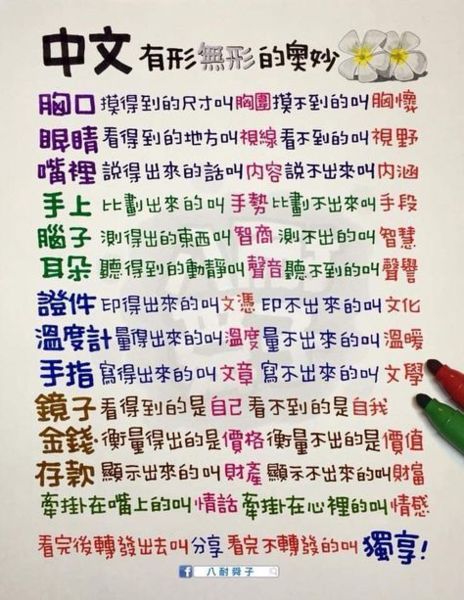 中文 有形無形的奧妙
胸口 摸得到的尺寸叫胸圍 摸不到的叫胸懷
眼睛 看得到的地方叫視線 看不到的叫視野
嘴裡 說得出來的話叫內容 說不出來叫內涵
手上 比劃出來的叫手勢 比劃不出來叫手段
腦子 測得出的東西叫智商 測不出的叫智慧
耳朵 聽得到的動靜叫聲音 聽不到的叫聲譽
證件 印得出來的叫文憑 印不出來的叫文化
溫度計 量得出來的叫溫度 量不出來的叫溫暖
手指 寫得出來的叫文章 寫不出來的叫文學
鏡子 看得到的是自己 看不到的是自我
金錢 衡量得出的是價格 衡量不出的是價值
存款 顯示出來的叫財產 顯示不出來的叫財富
牽掛在嘴上的叫情話 牽掛在心裡的叫情感
看完後轉發出去叫分享 看完不轉發的叫獨享!
f 八耐舜子